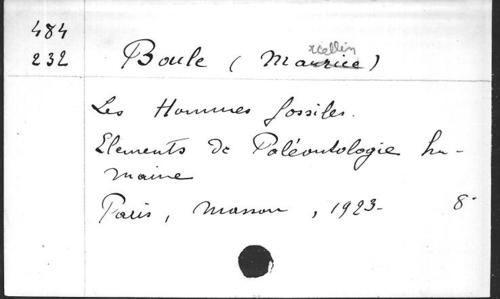 484
232
Boule (Maurice) rcellin
Les Hommes fossiles.
Elements de Paléontologie hu-
maine
Paris, Masson, 1923- 8°